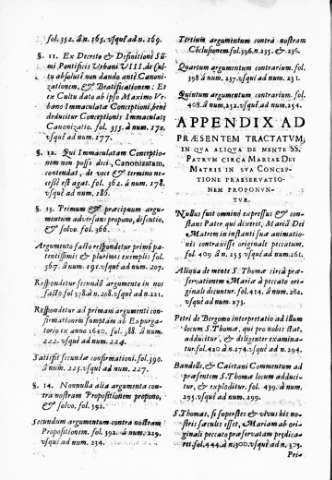 fol. 352. à n. 165. vsque ad n. 169.
§. 11. Ex Decreto & Definitione SSmi
Pontificis Urbani VIII. de Cultu
absoluté non dando anté Canonizationem,
& Beatificationem: Et
ex Cultu dato ab ipso Maximo Vrbano
Immaculatæ Conceptioni, bené
deducitur Conceptionis Immaculatę
Canonizatio. fol. 355. à num. 170.
vsque ad num. 177.
§. 12. Qui Immaculatam Conceptionem
non posse dici, Canonizatam,
contendat, de voce & termino nescit
est agat. fol. 362. à num. 178.
vsque ad num. 186.
§. 13. Primum & præcipuum argumentium
adversans propono, discutio,
& solvo. fol. 366.
Argumento facto respondetur primi patentissimé
& pluribus exemplis fol.
367. à num. 191. vsque ad num. 207.
Respondetur secundó argumento in nos
facto fol 378. à n. 208. vsque ad n. 221.
Respondetur ad primam argumenti confirmationem
sumptam ex Expurgatorio
ex anno 1640. fol. 388. à num.
222. vsque ad num. 224.
Satisfit secundæ confirmationi. fol. 390.
à num. 225. vsque ad num. 227.
§. 14. Nonnulla alia argumenta contra
nostram Propositionem propono,
& solvo. fol. 392.
Secundum argumentum contra nostram
Propositionem. fol. 392. à num. 229.
vsque ad num. 234.
Tertium argumentum contra nostram
Conclusionem fol. 396. n. 235. & 236.
Quartum argumentum contrarium. fol.
398. à num. 237. vsque ad num. 251.
Quintum argumentum contrarium. fol.
408. à num. 252. vsque ad num. 254.
APPENDIX AD
PRÆSENTEM TRACTATVM,
IN QVA ALIQVA DE MENTE SS.
PATRVM CIRCA MARIAE DEI
MATRIS IN SVA CONCEPTIONE
PRAESERVATIONEM
PROPONVNTVR.
Nullus fuit omninò expressus & constans
Pater qui dixerit, Mariã Dei
Matrem in instanti suæ animationis
contraxisse originale peccatum.
fol. 409. à n. 255. vsque ad n. 261.
Aliqua de mente S. Thomæ circà præservationem
Mariæ à peccato originali
adducuntur. fol. 414. à num. 262.
vsque ad num. 273.
Petri de Bergomo interpretatio ad illum
locum S. Thomæ, qui pro nobis stat,
adducitur, & diligenter examinatur.
fol. 420. à n. 274. vsque ad n. 294.
Bandelli, & Caietani Commentum ad
præsentem S. Thomæ locum adducitur,
& exploditur. fol. 439. à num.
295. vsque ad num. 299.
S. Thomas, si superstes & vivus his nostris
sæculis esset, Mariam ab originali
peccato præservatam prædicaret.
fol. 444. à n. 300. vsque ad n. 375.
Pri-